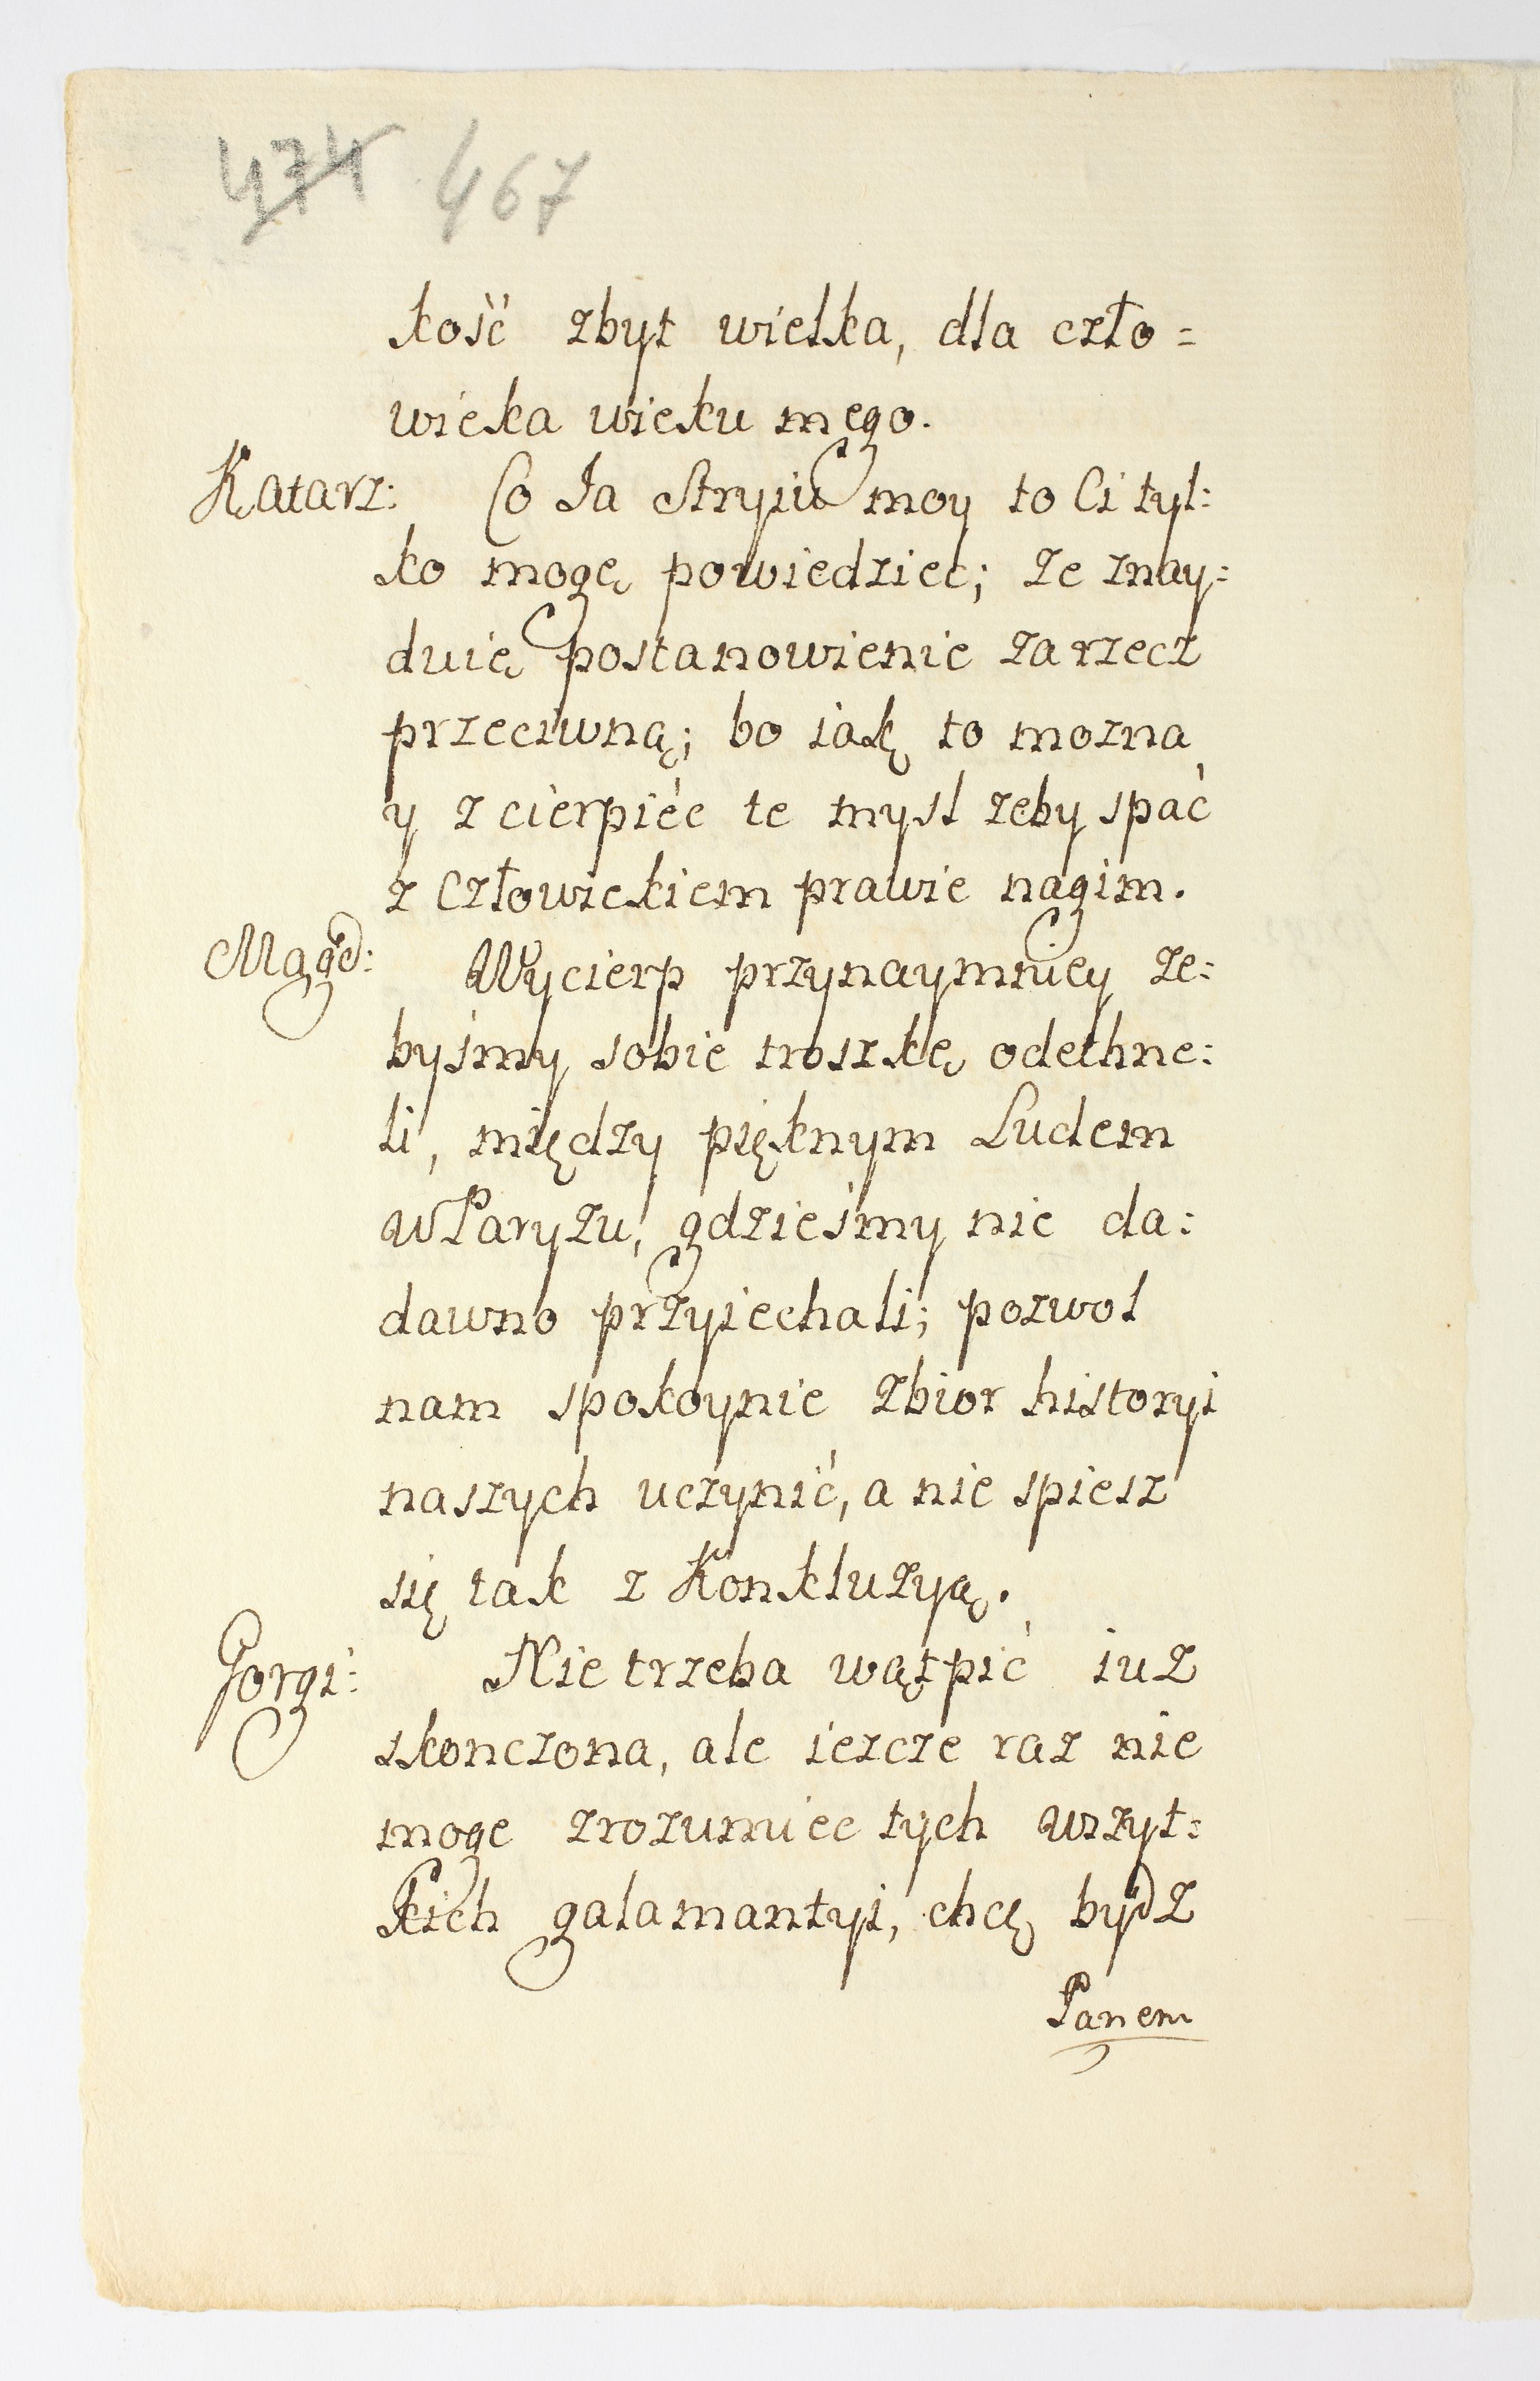 474 467
kość zbyt wielka, dla czło=
wieka wieku mego.
Katarz: Co Ja Stryiu moy to Ci tyl:
ko mogę powiedziec; ze znay:
duię postanowienie za rzecz
przeciwną; bo iak to mozna
y z cierpiéc te mysl zeby spać
z Człowiekiem prawie nagim.
Magd: Wycierp przynaymniey ze:
byśmy sobie troszkę odethne:
li, między pięknym Ludem
w Paryzu, gdzieśmy nie da:
dawno przyiechali; pozwol
nam spokoynie zbior historyi
naszych uczynić, a nie spiesz
się tak z Konkluzyą.
Gorgi: Nie trzeba wątpić iuz
skonczona, ale iezcze raz nie
moge zrozumiec tych wszyt:
kich galamantyi, chcę bydz
Panem